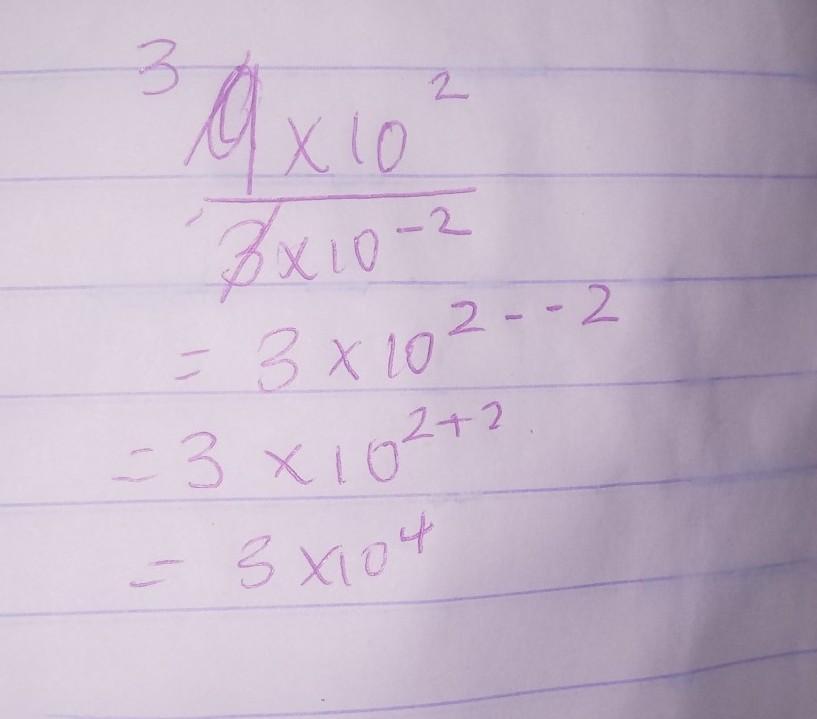 3 9 × 10²
3 × 10⁻²
= 3 × 10²⁻⁻²
= 3 × 10²⁺²
= 3 × 10⁴